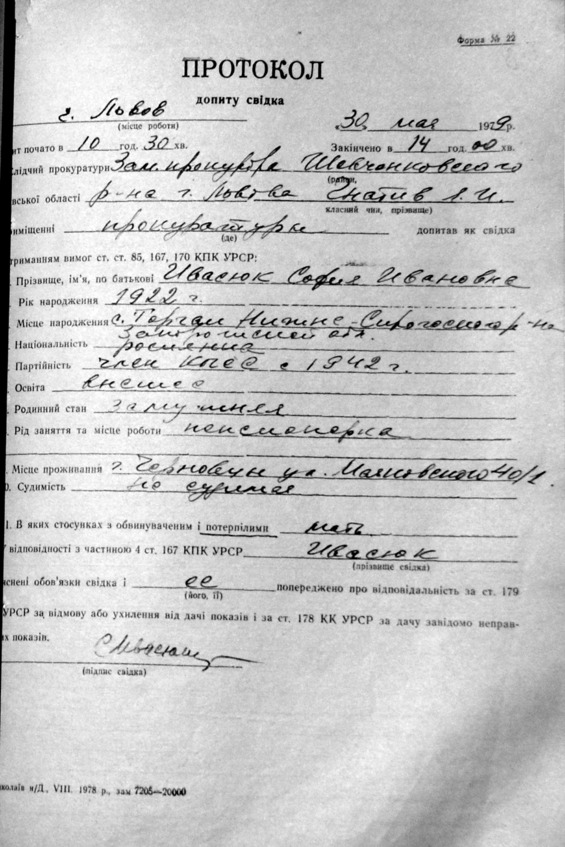 Форма № 22
ПРОТОКОЛ
допиту свідка
г. Львов
(місце роботи)
30 мая 1979р.
ит почато в 10 год. 30 хв. Закінчено в 14 год. 00 хв.
лідчий прокуратури Зам. прокурора Шевченковского
(район,
вської області р-на г. Львова Гнатив
класний чин, прізвище)
иміщенні прокуратуры допитав як свідка
(де)
триманням вимог ст. ст. 85, 167, 170 КПК УРСР:
. Прізвище, ім'я, по батькові Ивасюк София Ивановна
Рік народження 1922 г.
. Місце народження с. Торгаи Нижне-Сирогосского р-на
Запорожской обл.
. Національність россиянка
. Партійність член КПСС с 1942 г.
. Освіта высшее
. Родинний стан замужняя
. Рід заняття та місце роботи пенсионерка
. Місце проживання г. Черновцы ул. Маяковского 40/1.
0. Судимість не судимая
1. В яких стосунках з обвинуваченим і потерпілими мать
У відповідності з частиною 4 ст. 167 КПК УРСР Ивасюк
(прізвище свідка)
яснені обов'язки свідка і ее попереджено про відповідальність за ст. 179
(його, її)
УРСР за відмову або ухилення від дачі показів і за ст. 178 КК УРСР за дачу завідомо неправ-
их показів.
(підпис свідка)
колаїв н/Д., VIII. 1978 р., зам 7205—20000